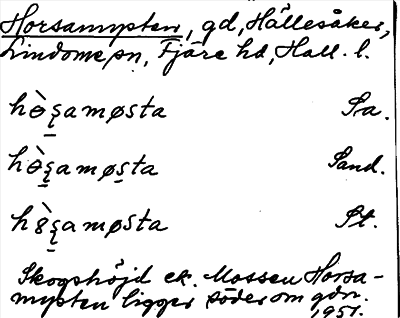 Horsamypten, gd, Hällesåker,
Lindome sn, Fjäre hd, Hall. l.
hɵ̀ʂamøsta Sa.
hɵ̀ʂamøsta Sand.
hȣ̀ʂamøsta St.
Skogshöjd el. Mossen Horsa-
mypten ligger söder om gdn.
1951.